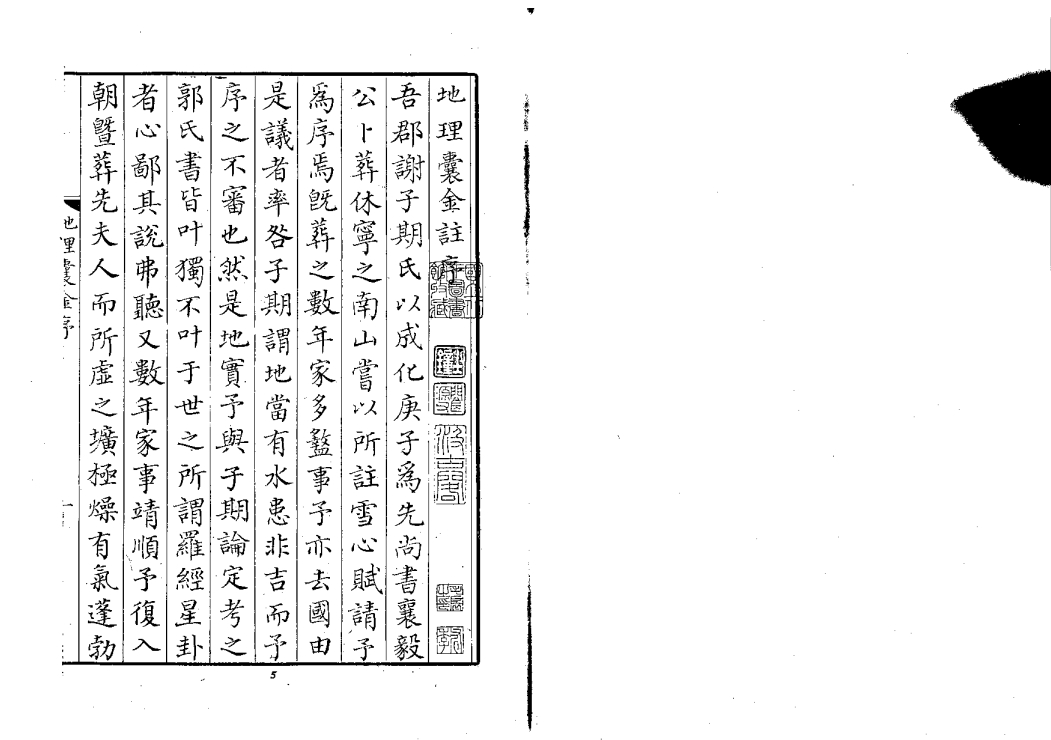 地理囊金註序
吾郡謝子期氏以成化庚子爲先尚書襄毅
公卜葬休寧之南山嘗以所註雪心賦請予
爲序焉旣葬之數年家多盭事予亦去國由
是議者率咎子期謂地當有水患非吉而予
序之不審也然是地實予與子期論定考之
郭氏書皆叶獨不叶于世之所謂羅經星卦
者心鄙其說弗聽又數年家事靖順予復入
朝曁葬先夫人而所虛之壙極燥有氣蓬勃
地理囊金序
5